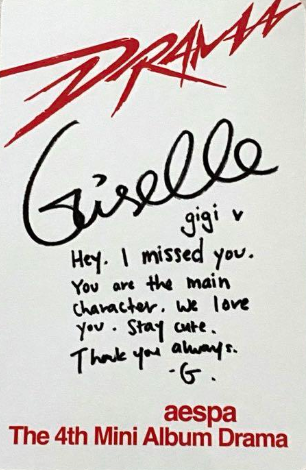 DRAMA
Giselle
gigi v
Hey. I missed you.
You are the main
character. We love
you. Stay cute.
Thank you always.
-G.
aespa
The 4th Mini Album Drama